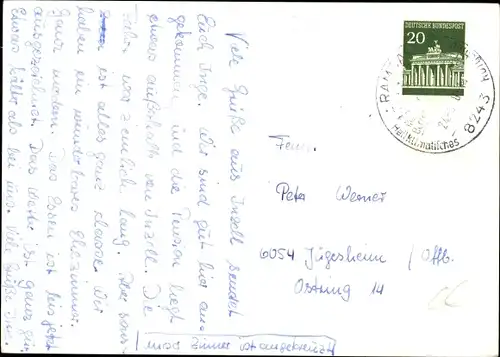 Viele Grüße aus Inzell sendet
Euch Inge. Wir sind gut hier an-
gekommen und die Pension liegt
etwas außerhalb von Inzell. Die
Fahrt war ziemlich lang. Aber sons-
ist alles ganz klasse. Wir
haben ein wunderbares Eßzimmer.
Ganz modern. Das Essen ist bis jetzt
ausgezeichnet. Das Wetter ist ganz gut.
Etwas kälter als bei uns. Viele Grüße Inge.
unser Zimmer ist angekreuzt
DEUTSCHE BUNDESPOST
20
8243
Heilklimatisches
Fam.
Peter Werner
6054 Jügesheim / Offb.
Ostring 14